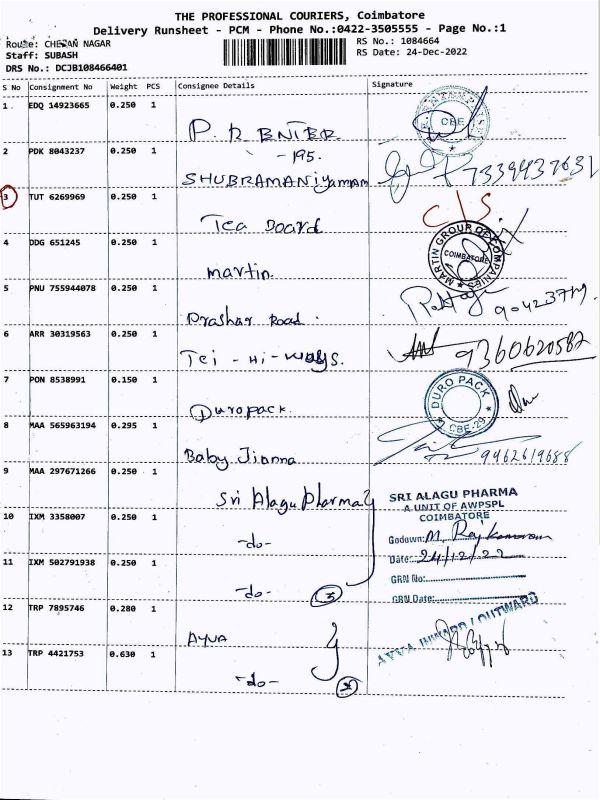 THE PROFESSIONAL COURIERS, Coimbatore
Delivery Runsheet - PCM - Phone No.:0422-3505555 - Page No.:1
Route: CHERAN NAGAR
RS No.: 1084664
Staff: SUBASH
RS Date: 24-Dec-2022
DRS No.: DCJB108466401
S No Consignment No Weight PCS Consignee Details Signature
1 EDQ 14923665 0.250 1
CBE
2 PDK 8043237 0.250 1
-195.
7339937631
3 TUT 6269969 0.250 1
C/S
Tea Board
4 DDG 651245 0.250 1
MARTIN GROUP OF COMPANIES
COIMBATORE
martin.
5 PNU 755944078 0.250 1
Prashar Road.
6 ARR 30319563 0.250 1
9360620582
Tci - Hi - ways.
7 PON 8538991 0.150 1
DURO PACK
CBE-29
Duropack.
8 MAA 565963194 0.295 1
9462619688
Baby Jianna
9 MAA 297671266 0.250 1
Sri Alagu Pharma
SRI ALAGU PHARMA
A UNIT OF AWPSPL
COIMBATORE
10 IXM 3358007 0.250 1
-do-
Godown: M.
Date: 24/12/22
11 IXM 502791938 0.250 1
GRN No:
-do- 3
GRN Date:
12 TRP 7895746 0.280 1
AYVA
AYVA INWARD / OUTWARD
13 TRP 4421753 0.630 1
-do- 2